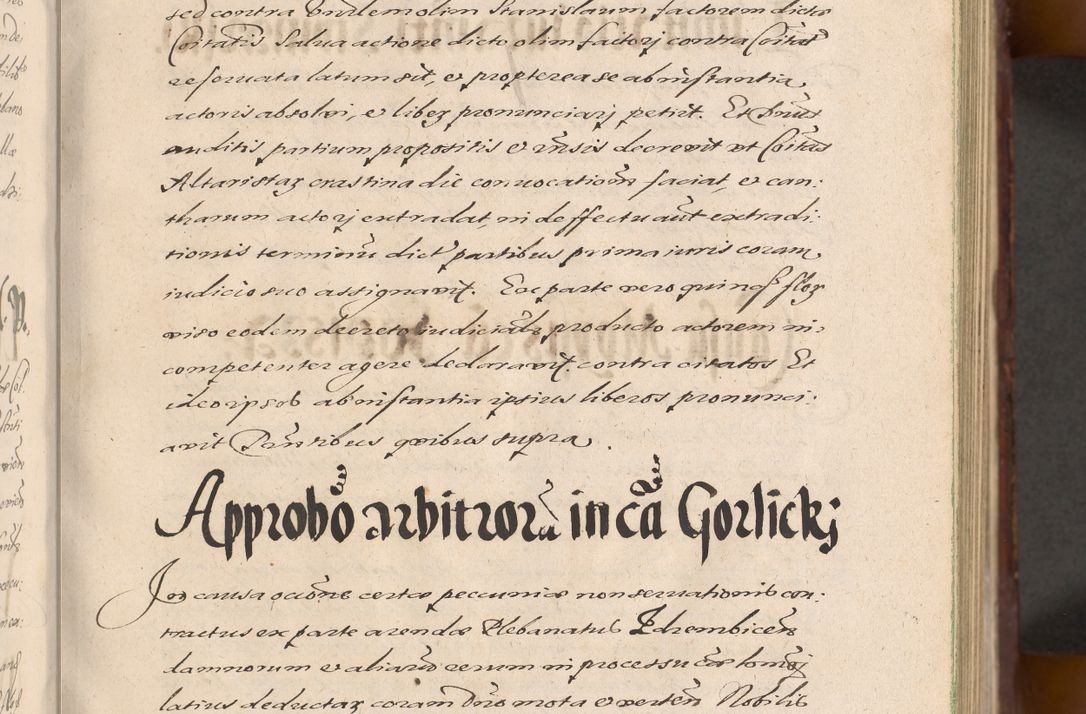 sed contra Bndlem olim Stanislaum factorem dictæ
Coitatis salua actione dicto olim factorj contra Coitat
reseruata latum sit, et propterea se ab instantia
actoris absolvi, et liberz pronunciarj petiit. Et Dnus
auditis partium propositis et visis decrevit vt Coitas
Altaristaz crastina die convocationē faciat, et can:
tharum actorj extradat, in deffectu aūt extradi:
tionis terminū dictus partibus prima iuris coram
iudicio suo assignavit. Ex parte vero quinqs
viso eodem decreto iudiciali producto actorem in:
competenter agere declaravit contra citatos Et
ideo ipsos ab instantia ipsius liberos pronunci:
avit Pntibus quibus supra.
Approbō arbitrorū in cā Gorlickj
In causa occōne certæ peccuniæ non seruationis con:
tractus ex parte arendæ Plebanatus Zdrembicen
damnorum et aliarū rerum in processu
latius deductaz coram Dno mota et verten Nobilis